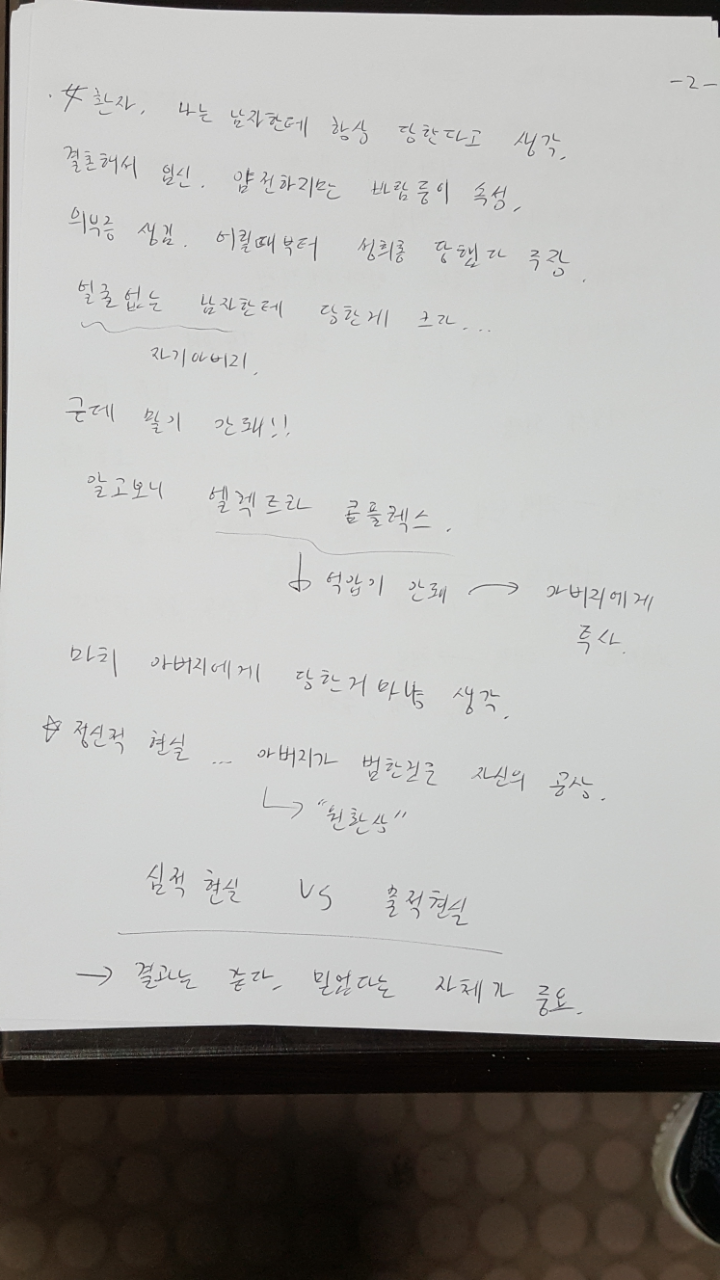 -2-
# 환자. 나는 남자한테 항상 당한다고 생각.
결혼해서 임신. 얌전하지만 바람둥이 속성.
의부증 생김. 어릴때부터 성희롱 당했다 주장.
얼굴없는 남자한테 당한게 크다...
자기아버지.
근데 말기 간돼!!
알고보니 엘렉트라 콤플렉스.
억압기 간돼 → 아버지에게
투사.
마치 아버지에게 당한거마냥 생각.
☆ 정신적 현실 ... 아버지가 범한적은 자신의 공상.
↳ "원환상"
심적 현실 VS 물적현실
→ 결과는 같다. 믿었다는 자체가 중요.